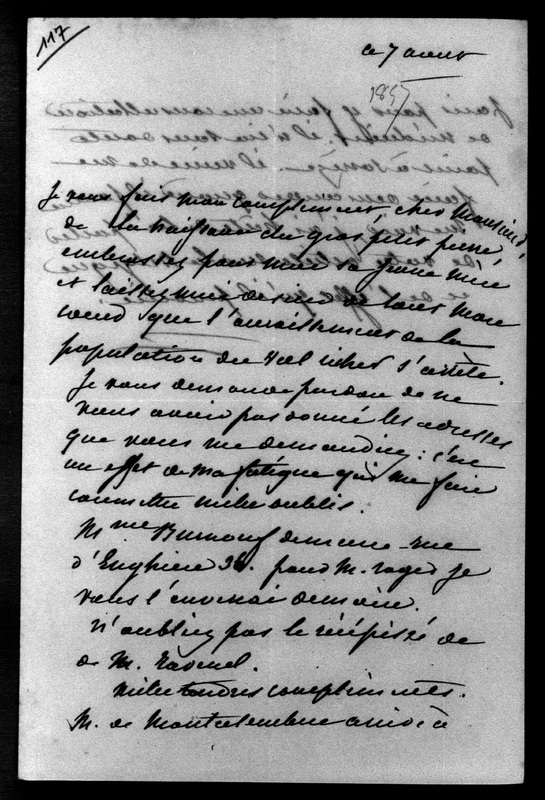 117
ce 7 aout
1857
Je vous fais mon compliment, cher Monsieur,
de la naissance du gros petit Pierre,
embrassez pour moi sa jeune mère
et laissez moi desirer de tout mon
coeur que l'accroissement de la
population du Val richer s'arrète.
Je vous demande pardon de ne
vous avoir pas donné les adresses
que vous me demandiez : c'est
un effet de ma fatigue qui me fait
commettre mille oublis.
Mme Burnouf demeure rue
d'Enghien 36. pour M. roger je
vous l'enverrai demain.
N'oubliez pas le récépissé de
de M.
mille tendres compliments.
M. de Montalembert arrive à